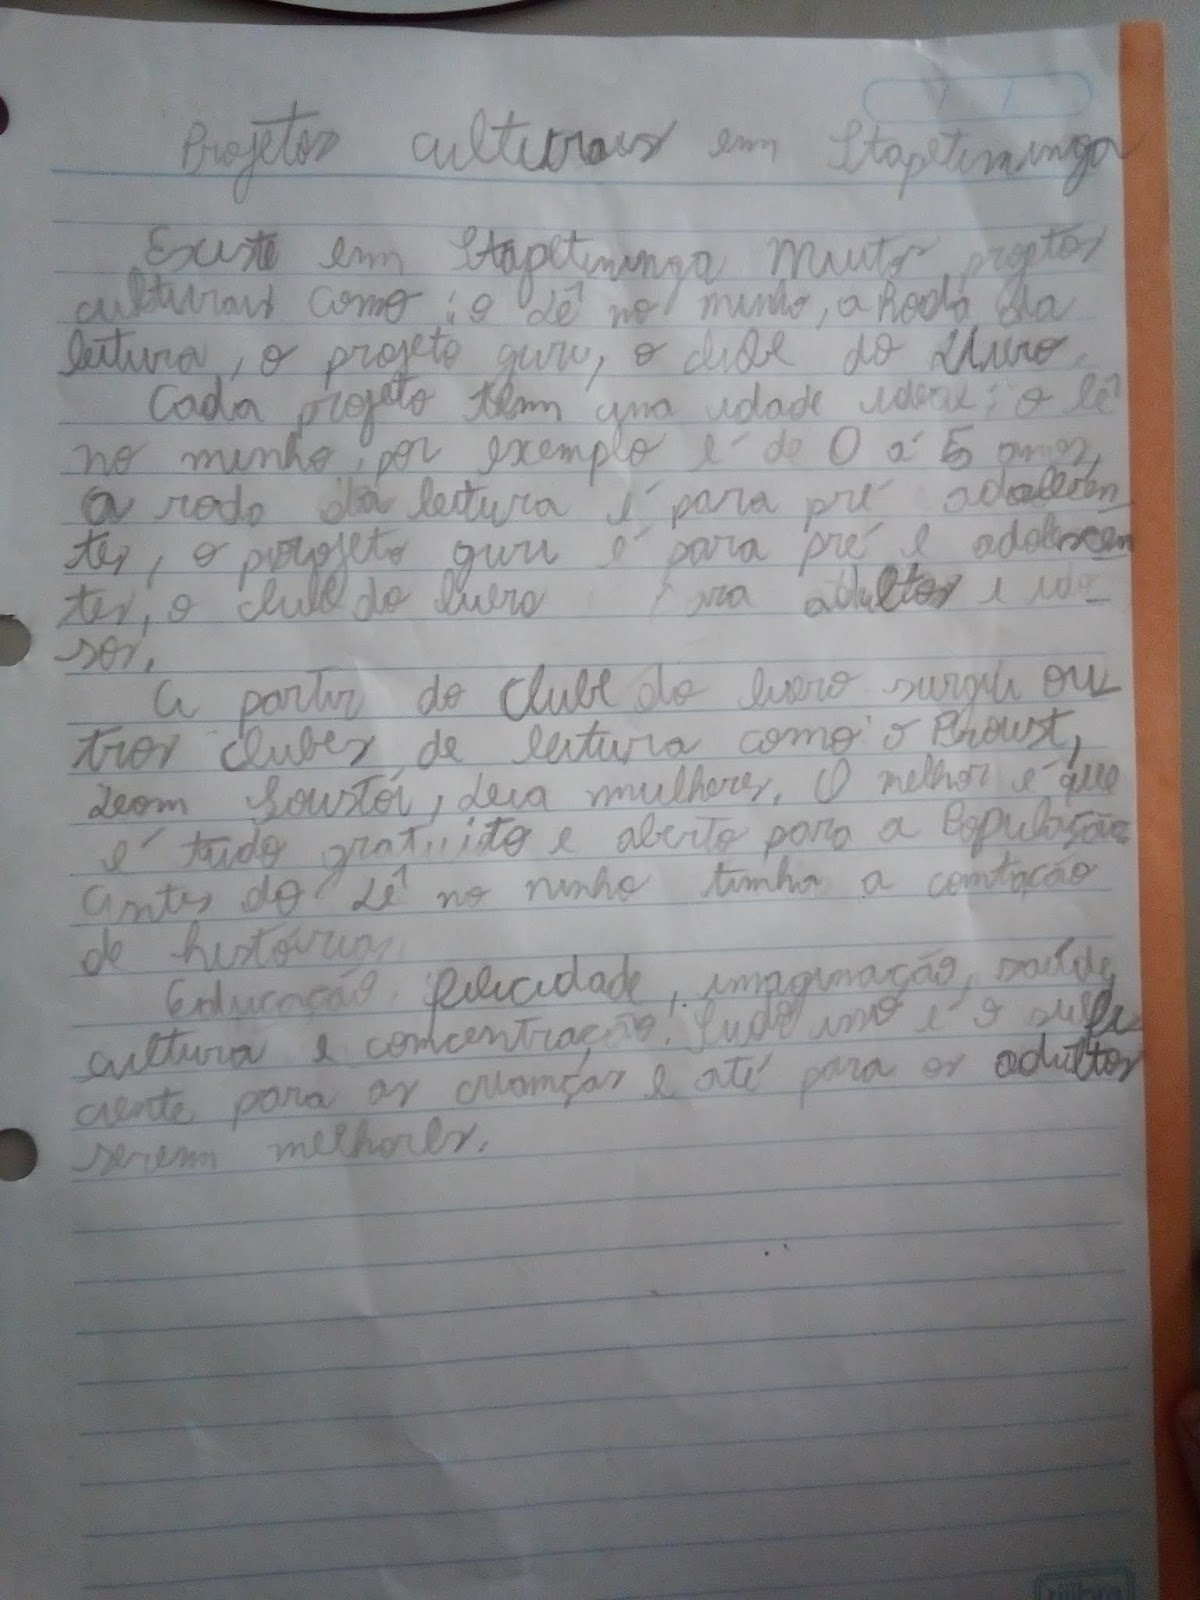 Projetos culturais em Itapetininga
Existe em Itapetininga muitos projetos
culturais como: o Lê no ninho, a Roda da
leitura, o projeto guri, o clube do Livro.
Cada projeto tem uma idade ideal; o lê
no ninho, por exemplo é de 0 á 5 anos,
a roda da leitura é para pré adolecen-
tes, o projeto guri é para pré e adolescen
tes, o clube do livro para adultos e ido-
sos.
A partir do clube do livro surgiu ou-
tros clubes de leitura como: o Proust,
Leon Toustói, Leia mulheres. O melhor é que
é tudo gratuito e aberto para a População
Antes do Lê no ninho tinha a contação
de histórias
Educação, felicidade, imaginação, saúde,
cultura e concentração. Tudo isso é o sufi
ciente para as crianças e até para os adultos
serem melhores.